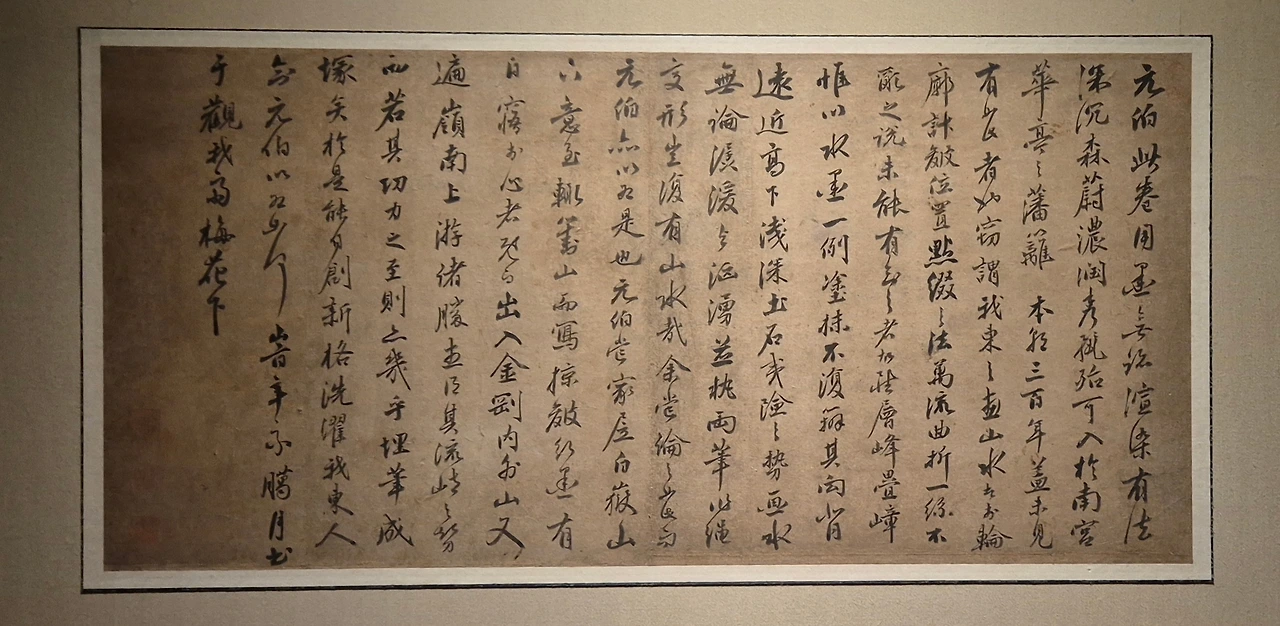 元伯此卷用墨無跡渲染有法
深沉森蔚濃潤秀挑殆可入於南宮
華亭之藩籬本朝三百年蓋未見
有如此者也竊謂我東之畫山水者於輪
廓計皴位置點綴之法萬流曲折一絲不
亂之說未能有知之者故雖層峰疊嶂
惟以水墨一例塗抹不復辨其向背
遠近高下淺深土石夷險之勢画水
無論潺湲與洶湧並執兩筆作繩
交形豈復有山水哉余嘗論之如此而
元伯亦以為是也元伯嘗家居白嶽山
下意至輒對山而寫掠皴行墨有
自寤於心者既而出入金剛內外山又
遍嶺南上游諸勝盡得其流峙之勢
而若其功力之至則亦幾乎埋筆成
塚矣於是能自創新格洗濯我東人
元伯以為 年 臘月書
于觀我齋梅花下